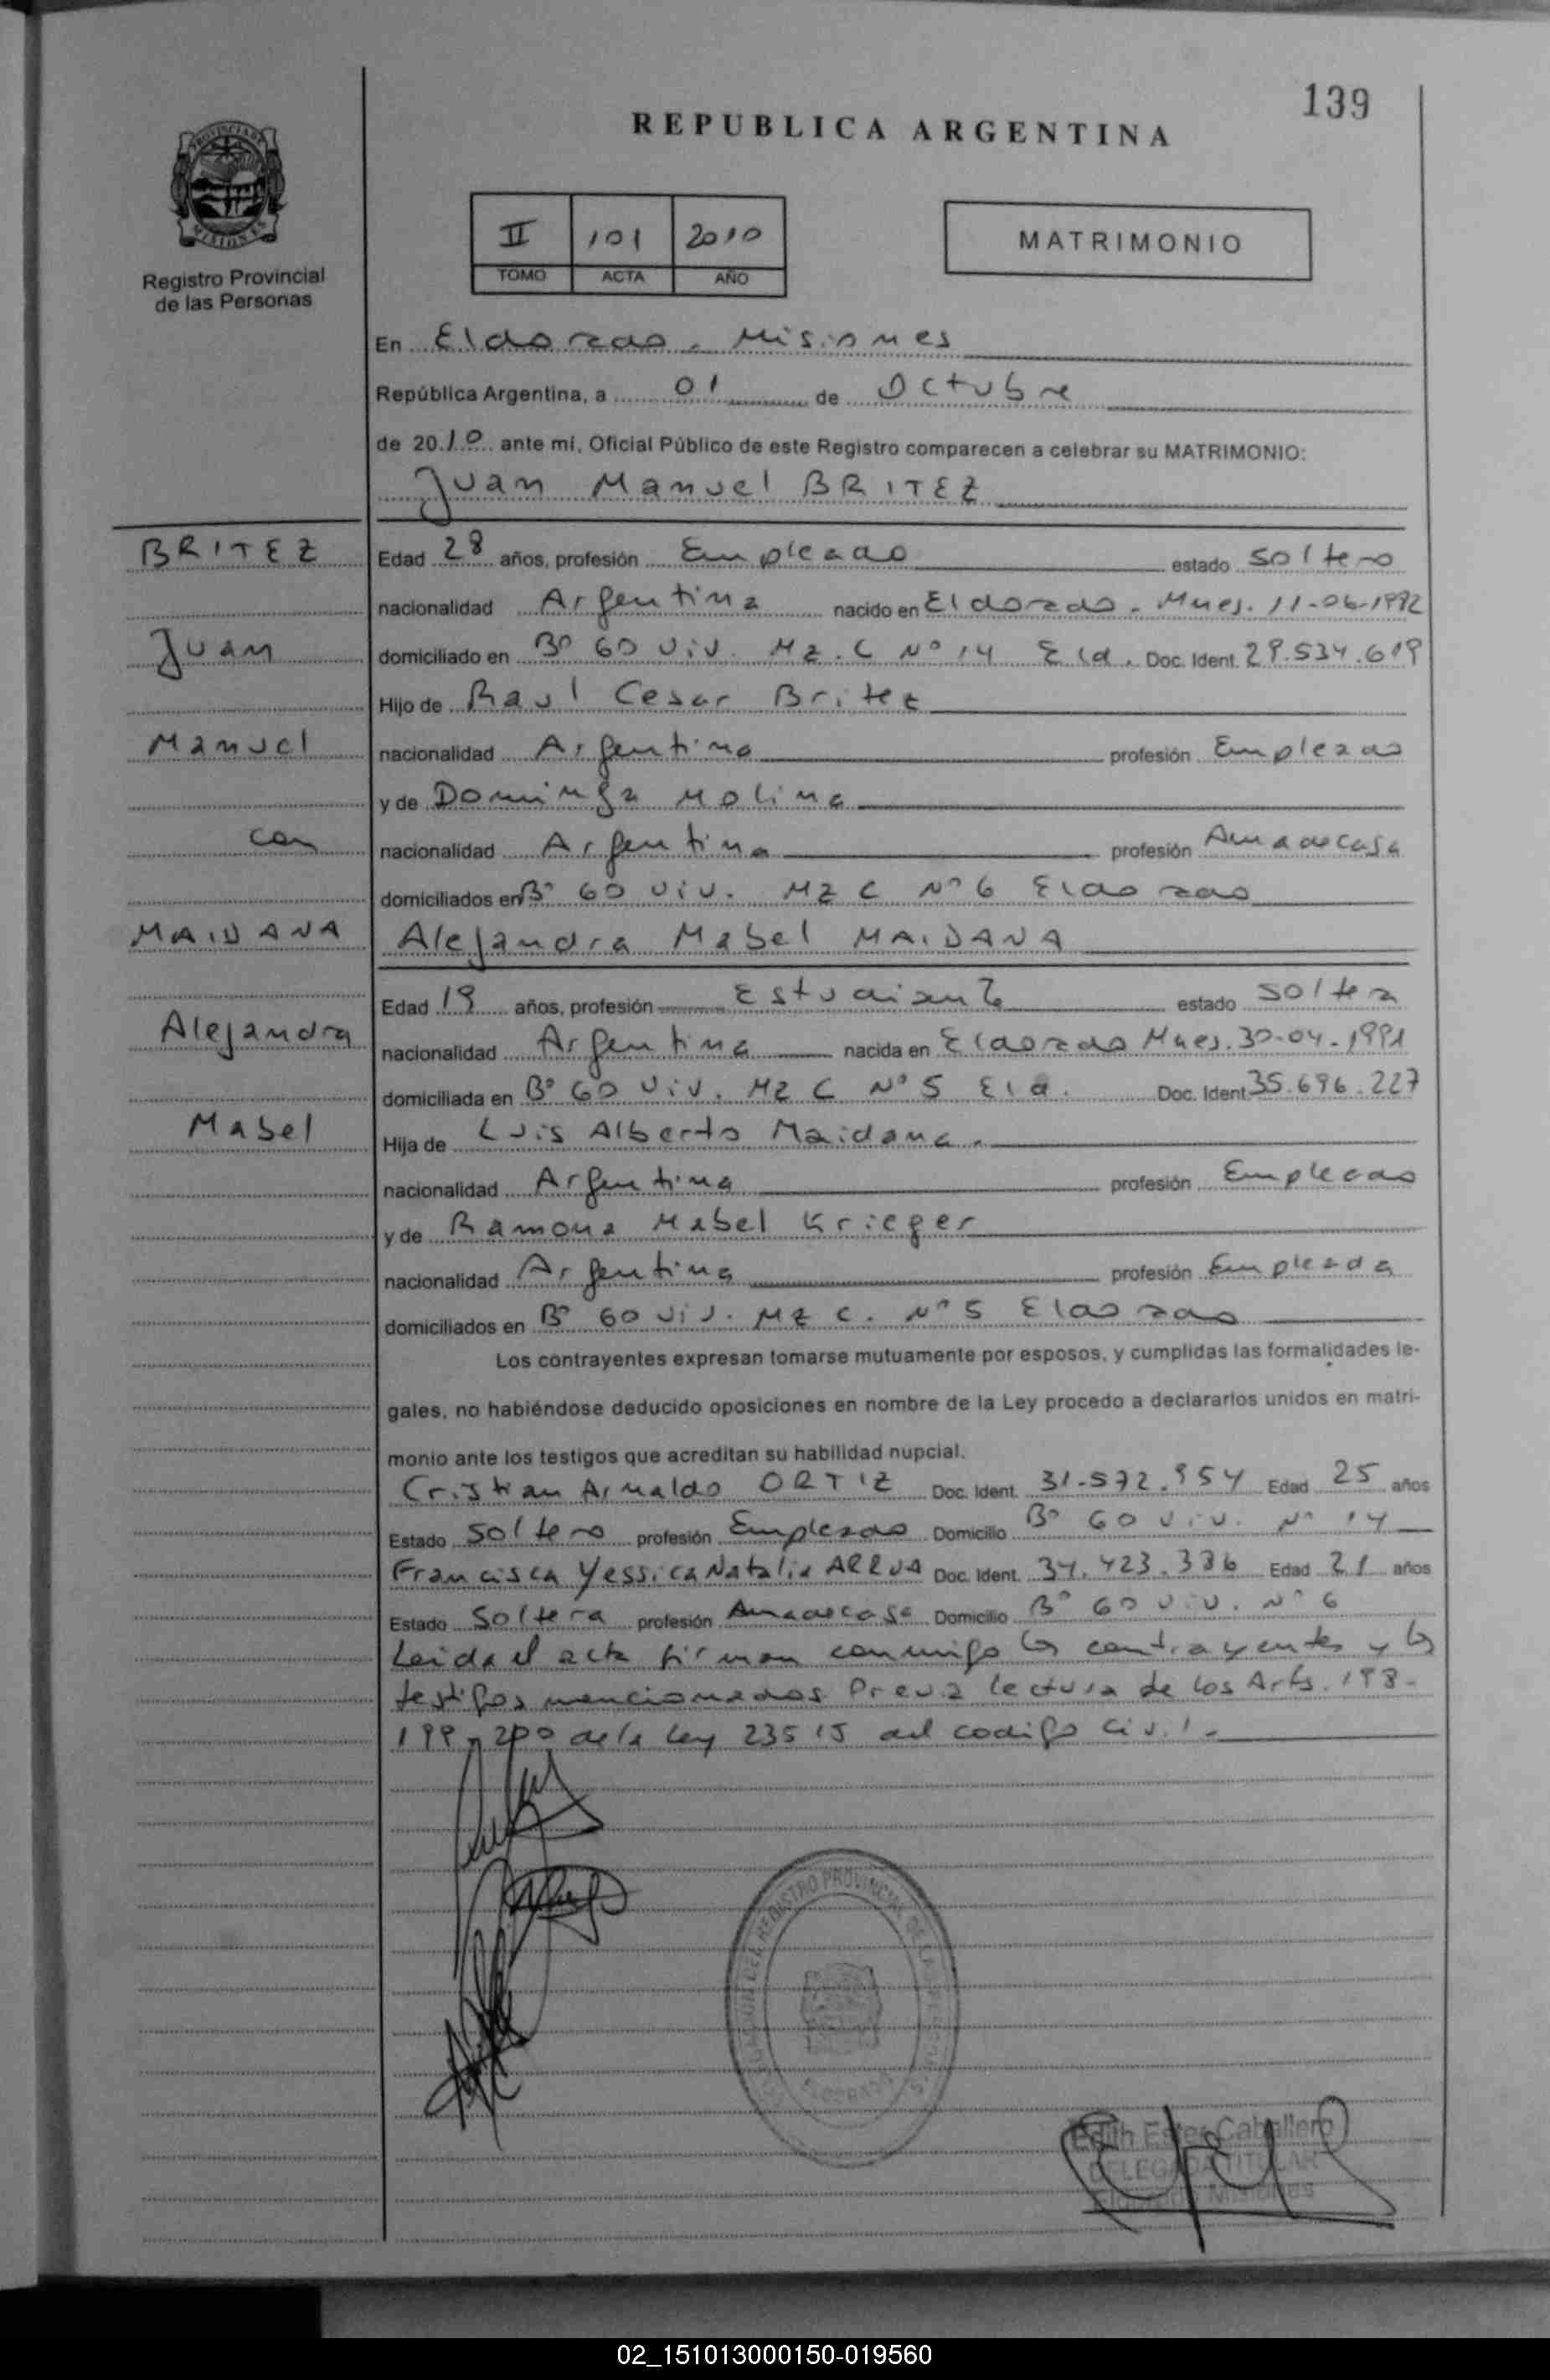 139
REPUBLICA ARGENTINA
PROVINCIA DE
MISIONES
Registro Provincial
de las Personas
II 101 2010
TOMO ACTA AÑO
MATRIMONIO
En Eldorado. Misiones
República Argentina, a 01 de Octubre
de 2010 ante mí, Oficial Público de este Registro comparecen a celebrar su MATRIMONIO:
Juan Manuel BRITEZ
BRITEZ
Edad 28 años, profesión Empleado estado soltero
nacionalidad Argentina nacido en Eldorado. Mnes. 11-06-1982
Juan
domiciliado en Bº 60 Viv. Mz. C Nº 14 Eld. Doc. Ident. 29.534.619
Hijo de Raul Cesar Britez
Manuel
nacionalidad Argentina profesión Empleado
y de Dominga Molina
con
nacionalidad Argentina profesión Ama de casa
domiciliados en Bº 60 Viv. MZ C Nº 6 Eldorado
MAIDANA
Alejandra Mabel MAIDANA
Edad 19 años, profesión Estudiante estado soltera
Alejandra
nacionalidad Argentina nacida en Eldorado Mnes. 30-04-1991
domiciliada en Bº 60 Viv. MZ C Nº 5 Eld. Doc. Ident 35.696.227
Mabel
Hija de Luis Alberto Maidana.
nacionalidad Argentina profesión Empleado
y de Ramona Mabel Krieger
nacionalidad Argentina profesión Empleada
domiciliados en Bº 60 Viv. MZ C. Nº 5 Eldorado
Los contrayentes expresan tomarse mutuamente por esposos, y cumplidas las formalidades le-
gales, no habiéndose deducido oposiciones en nombre de la Ley procedo a declararlos unidos en matri-
monio ante los testigos que acreditan su habilidad nupcial.
Cristian Arnaldo ORTIZ Doc. Ident. 31-572.954 Edad 25 años
Estado soltero profesión Empleado Domicilio Bº 60 Viv. Nº 14
Francisca Yessica Natalia ARRUA Doc. Ident. 34.423.336 Edad 21 años
Estado Soltera profesión Ama de casa Domicilio Bº 60 Viv. Nº 6
Leida el acta firman conmigo los contrayentes y los
testigos mencionados. Previa lectura de los Arts. 198-
199 y 200 de la Ley 23515 del codigo civil.
REGISTRO PROVINCIAL DE LAS PERSONAS
ELDORADO
Edith Ester Caballero
DELEGADA TITULAR
Eldorado Misiones
02_151013000150-019560